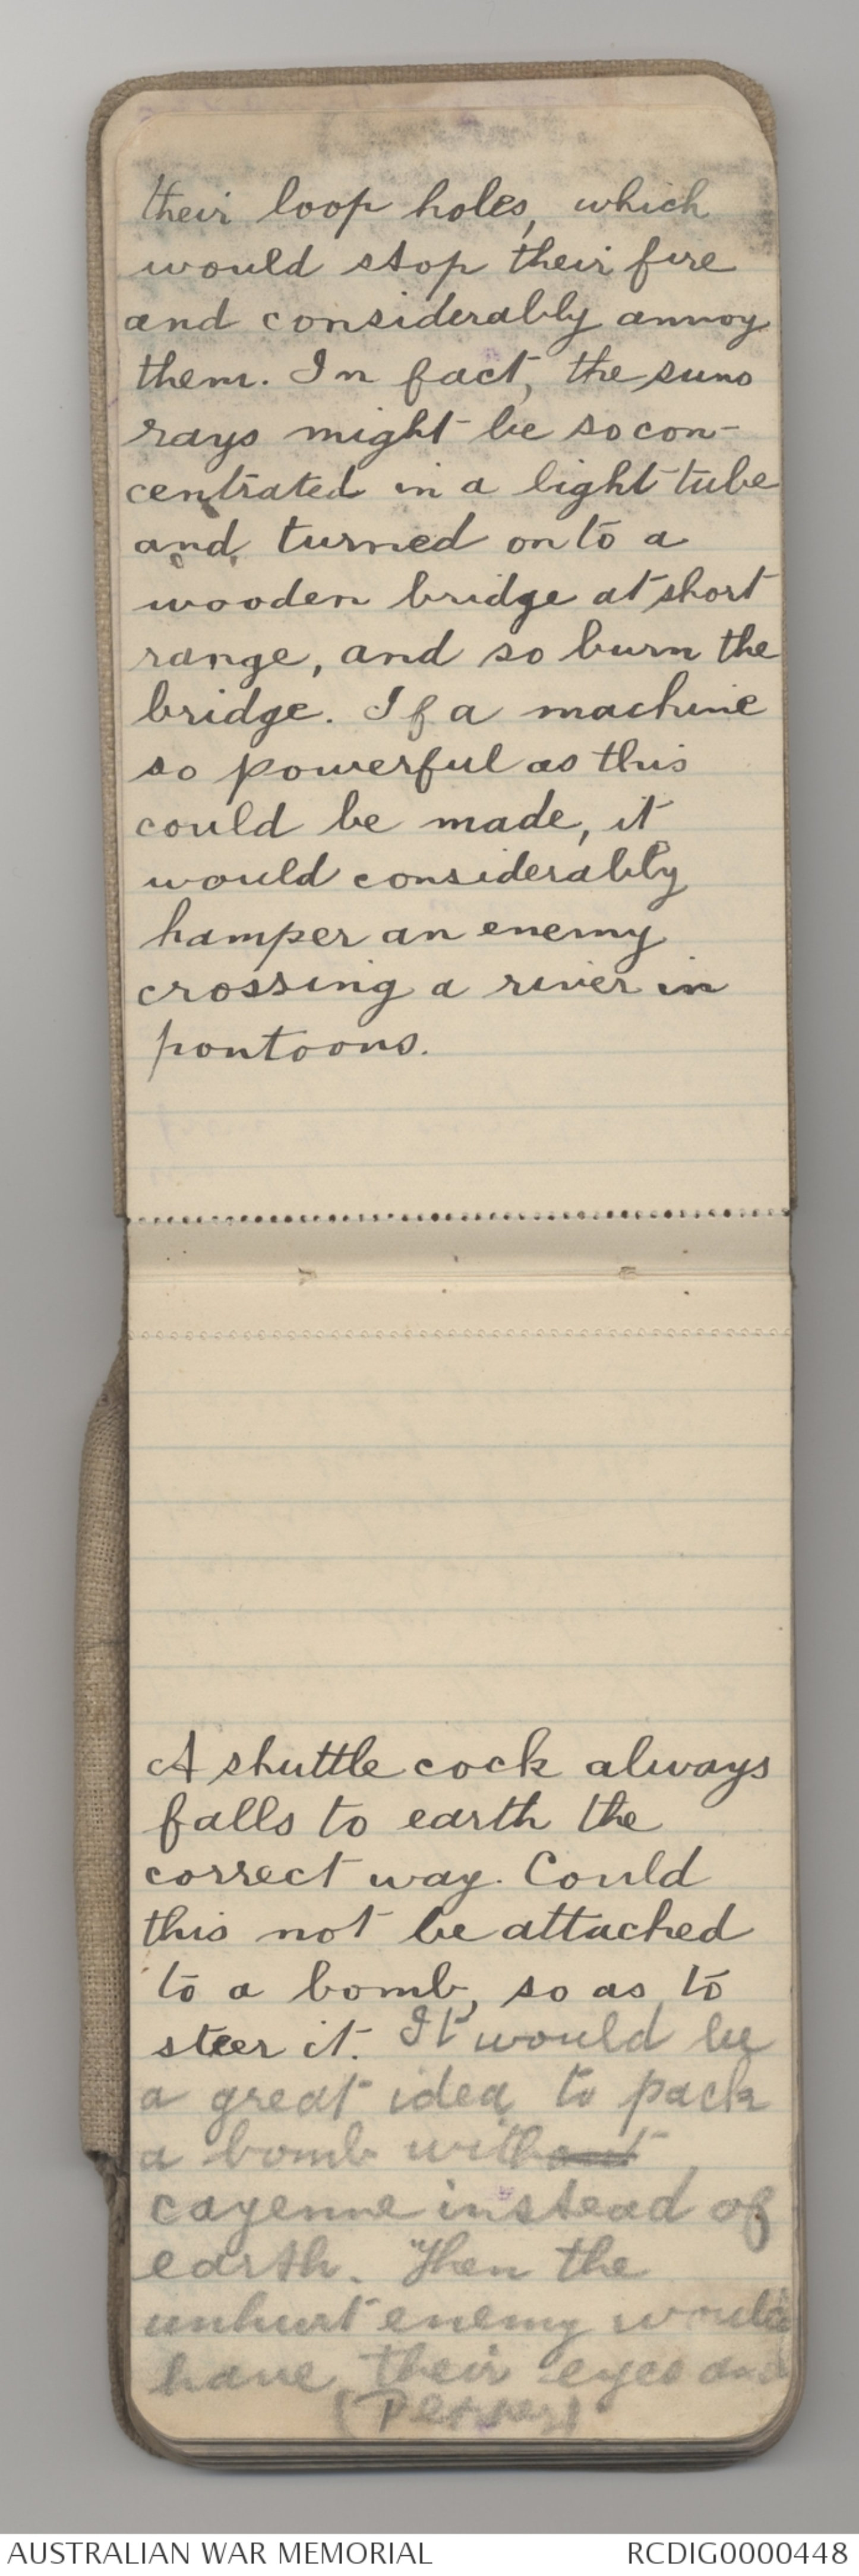 their loop holes, which
would stop their fire
and considerably annoy
them. In fact, the suns
rays might be so con-
centrated in a light tube
and turned onto a
wooden bridge at short
range, and so burn the
bridge. If a machine
so powerful as this
could be made, it
would considerably
hamper an enemy
crossing a river in
pontoons.
A shuttle cock always
falls to earth the
correct way. Could
this not be attached
to a bomb, so as to
steer it. It would be
a great idea to pack
a bomb without
cayenne instead of
earth. Then the
unhurt enemy would
have their eyes and
(Pepper)
AUSTRALIAN WAR MEMORIAL
RCDIG0000448